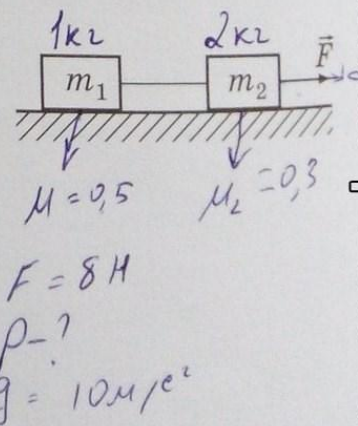 1кг 2кг
m₁ m₂ F⃗
μ = 0,5 μ₂ = 0,3
F = 8 Н
ρ - ?
g = 10 м/с²